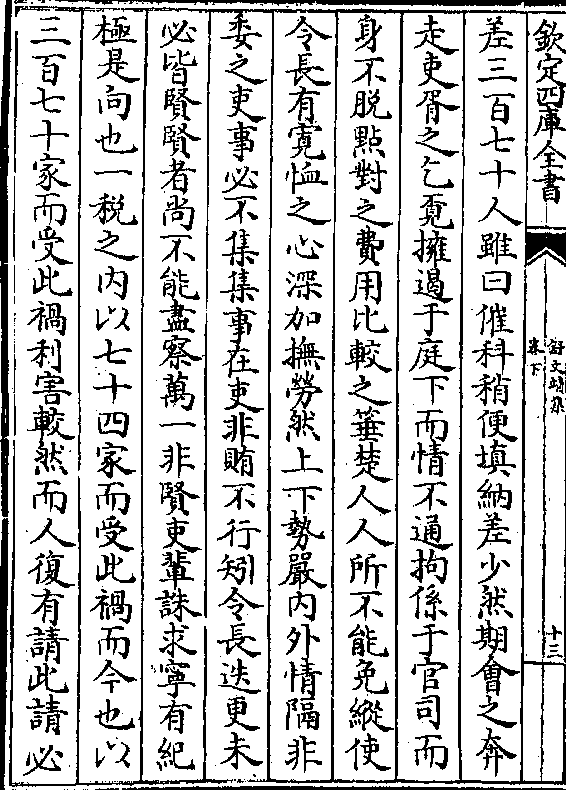 欽定四庫全書
舒文靖集
卷下
十三
差三百七十人雖曰催科稍便填納差少然期會之奔
走吏胥之乞覔擁遏于庭下而情不通拘係于官司而
身不脱點對之費用比較之箠楚人人所不能免縱使
令長有寛恤之心深加撫勞然上下勢嚴内外情隔非
委之吏事必不集集事在吏非賄不行矧令長迭更未
必皆賢賢者尚不能盡察萬一非賢吏輩誅求寧有紀
極是向也一税之内以七十四家而受此禍而今也以
三百七十家而受此禍利害較然而人復有請此請必